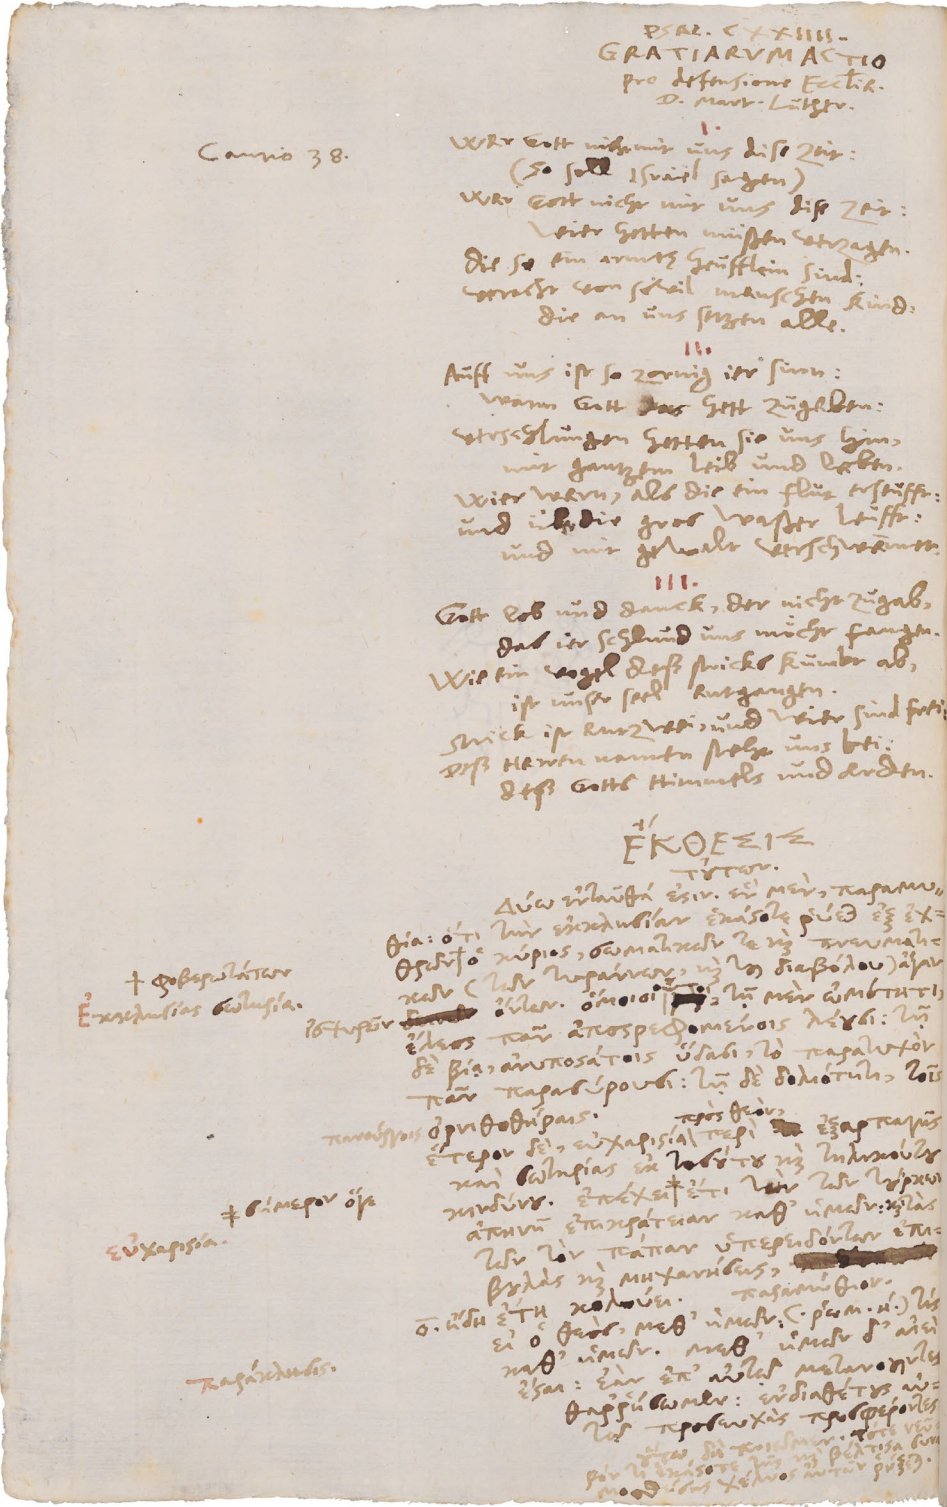 PSAL. CXXIIII.
GRATIARVM ACTIO
pro defensione Eccliæ.
D. Mart. Luther.
I.
Cantio 38.
Wær Gott nicht mit uns dise Zeit:
(So soll Israël sagen)
Wær Gott nicht mit uns dise Zeit:
wier hetten müßen verzagen.
die so ein armes heufflein sind:
veracht von so vil menschen kind,
die an uns setzen alle.
II.
Auff uns ist so zornig ier sinn:
wann Gott das hett zugeben:
verschlungen hetten sie uns hin,
mit gantzem leib und leben.
wier wern, als die ein flut erseufft:
und über die gros waßer leufft:
und mit gewalt verschwemmet.
III.
Gott lob und danck, der nicht zugab,
das ier schlund uns möcht fangen.
Wie ein vogel deß stricks kumbt ab,
ist unser seel entgangen.
Strick ist entzwei, und wier sind frei:
Deß Herren namen steht uns bei:
deß Gotts Himmels und Ærden.
ἜΚΘΕΣΙΣ
τούτων.
Δύω ἐνταῦθά ἐστιν. ἓν μὲν, παραμυ-
θία: ὅτι τὴν ἐκκλησίαν ἑκάστοτε ῥύεται ἐξ ἐχ-
θρῶν ὁ κύριος, σωματικῶν τε καὶ πνευματι-
κῶν (τῶν τυράννων, καὶ τοῦ διαβόλου)
† φοβερωτάτων
Ἐκκλησίας σωτηρία.
ἰσχυρῶν ὄντων. τῇ μὲν ὠμότητι,
ἔλεος πᾶν ἀποστρεφομένοις λέουσι: τῇ
δὲ βίᾳ, ἀνυποστάτοις ὕδασι, τὸ παρατυχὸν
πᾶν παρασύρουσι: τῇ δὲ δολιότητι, τοῖς
πανούργοις ὀρνιθοθήραις.
πρὸς θεὸν,
ἕτερον δὲ, εὐχαριστία περὶ ἐξαρπαγῆς
καὶ σωτηρίας ἐκ τοσούτου καὶ τηλικούτου
κινδύνου. ἐπέχει ἔτι τῶν τούρκων
‡ σήμερον
ἀπηνῆ ἐπικράτειαν καθ' ἡμῶν: καὶ τὰς
εὐχαριστία.
τῶν τὸν πάπαν ὑπερειδόντων ἐπι-
βουλὰς καὶ μηχανήσεις,
ἤδη ἔτη κολούει. παραμύθιον.
εἰ ὁ θεὸς, μεθ' ἡμῶν: (ῥωμ. ή.) τίς
καθ' ἡμῶν. μεθ' ἡμῶν δ' ἀεὶ
Παράκλησις.
ἔσται: ἐὰν ἐπ' αὐτῷ μετανοοῦντες
θαρρήσωμεν: ἐνδιαθέτους αὐ-
τῷ προσευχὰς προσφέροντες